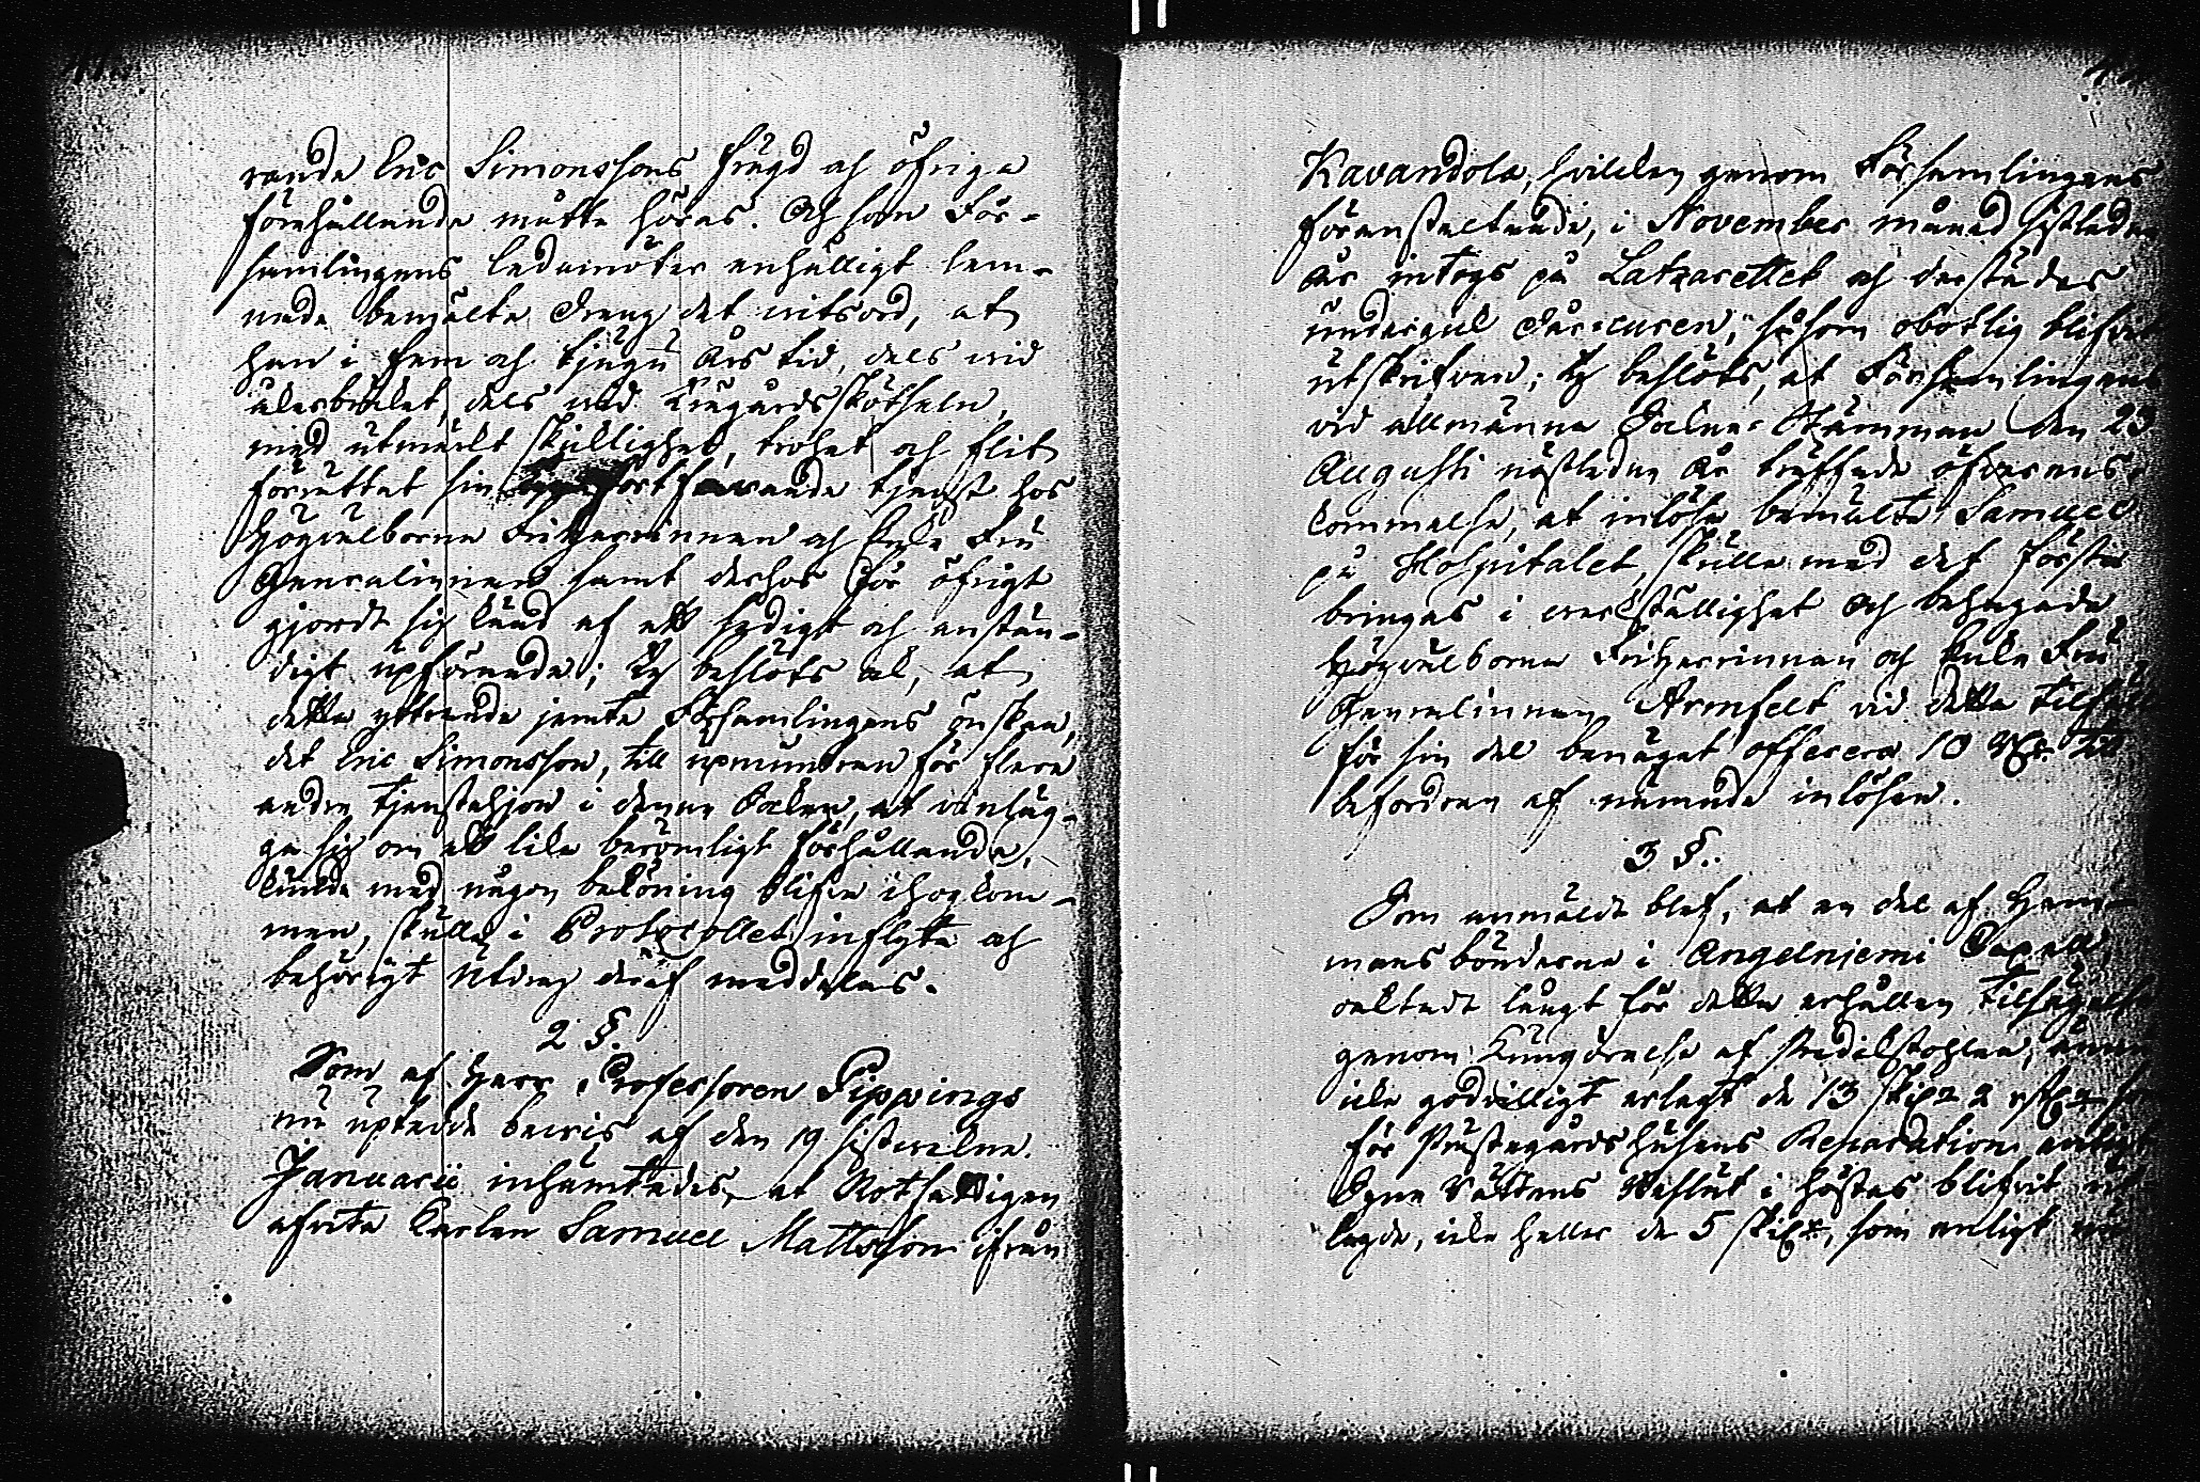 rande Eric Simonssons frägd och öfriga
förehållande måtte höras. Och som För-
samlingens Ledamöter enhälligt lem-
nade bemälte Dreng det vitsord, at
han i fem och tjugu års tid, dels vid
åkerbruket, dels vid Trägårdsskötseln,
med utmärkt skicklighet, trohet och flit
förrättat sin fortfarande tjenst hos
Högvälborna Friherrinnan och Enke Fru
Generalinnan samt derhos för öfrigt
gjordt sig känd af ett sedigt och anstän-
digt upförande; Ty beslöts ock, at
detta yttrande jemte Församlingens önskan,
det Eric Simonsson, till upmuntran för flera
andra tjenstehjon i denna Socken, at vinläg-
ga sig om ett lika berömligt förhållande,
kunde med någon belöning blifva ihogkom-
men, skulle i Protocollet inflyta och
behörigt Utdrag deraf meddelas.
2 §.
Som af Herr Professoren Pippings
nu uptedde bevis af den 19 sistvekne
Januarii inhämtades, at Rothaltigen
afvita Karlen Samuel Mattsson ifrån
Kavandola, hvilken genom Församlingens
föranstaltande, i November månad sistledne
år intogs på Latzarettet och derstädes
undergul Sår-curen, såsom obotlig blifvit
utskrifven; ty beslöts, at Församlingens
vid allmänna Sockne-Stämman den 23
Augusti nästledne år träffade öfverens-
kommelse, at inlösa bemälte Samuel
på Hospitalet, skulle med det första
bringas i verkställighet och behagade
Högvälborna Friherrinnan och Enke Fru
Generalinnan Armfelt vid detta tilfälle
för sin del benäget offerera 10 till
befordran af nämnde inlösen.
3 §.
Som anmäldt blef, at en del af Hem-
mans bönderne i Angelnjemi Capell,
oaktadt långt för detta erhållen tilsägelse
genom Kungörelse af Predikstohlen, ännu
icke godvilligt erlagt de 13 sk
för Prästegårds husens Reparation enligt
Egne Rättens Utslut i höstas blifvit
lagde, icke heller de 5 sk, som enligt